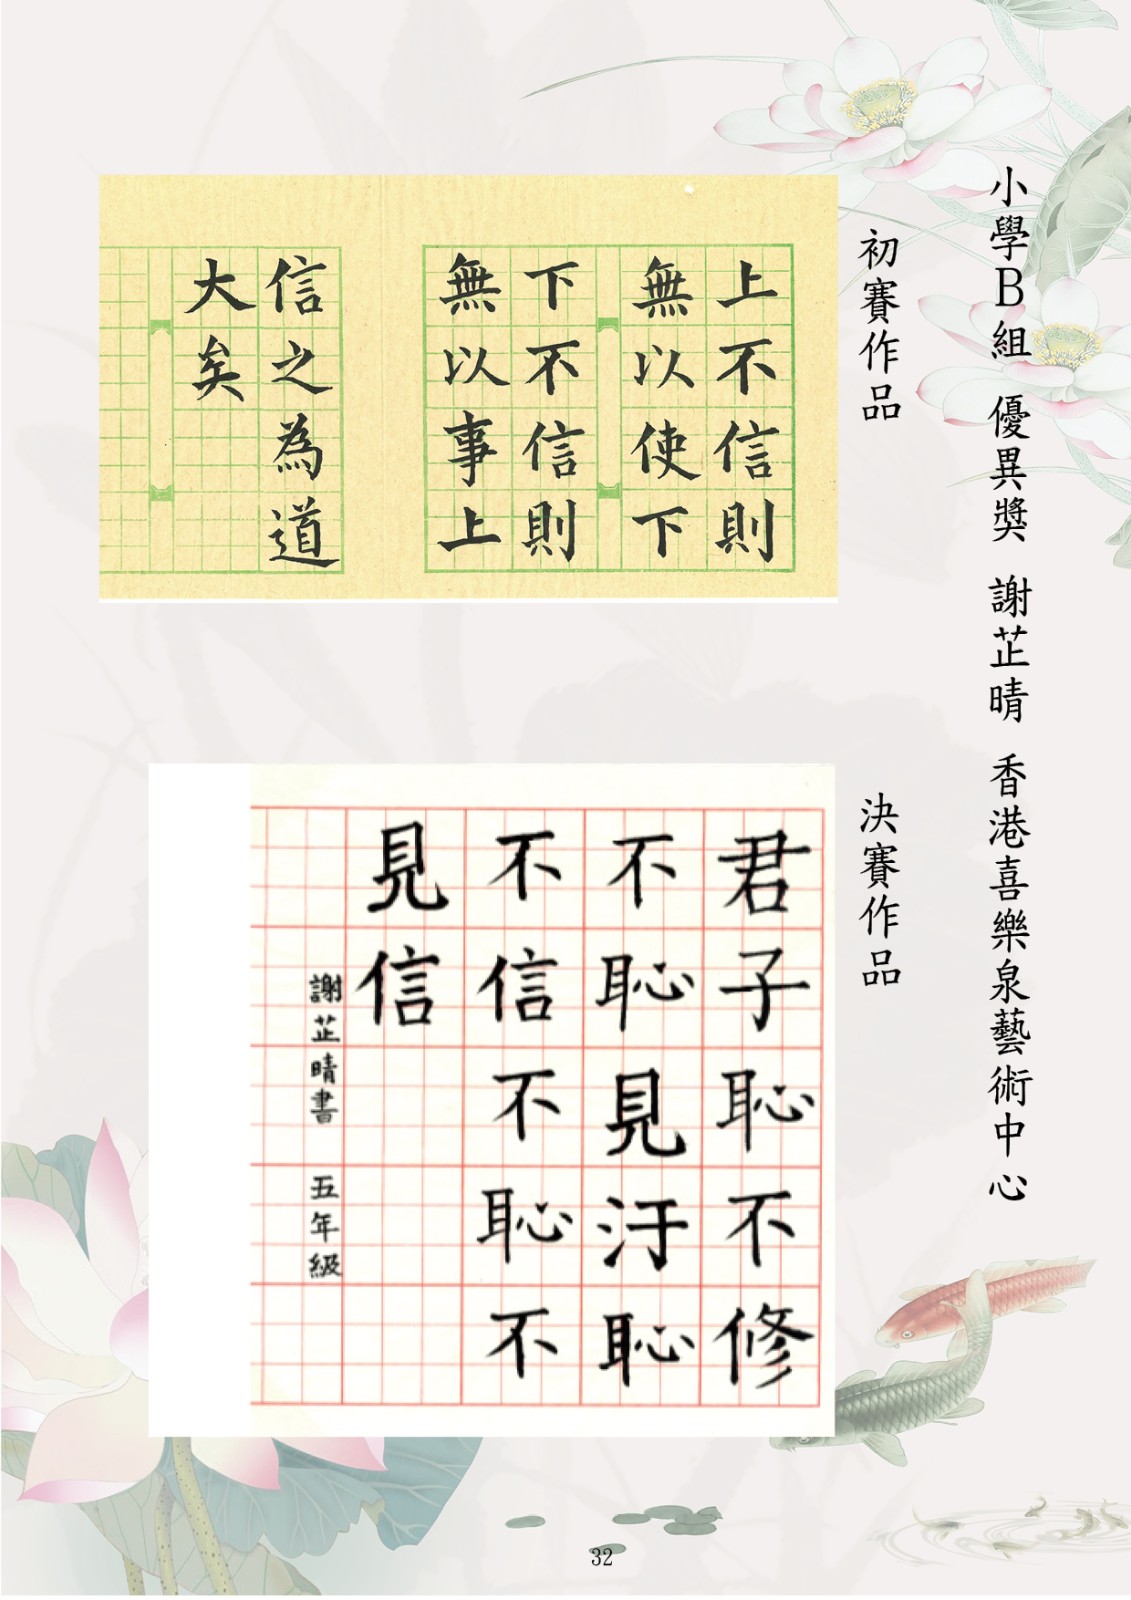 小學B組 優異獎 謝芷晴 香港喜樂泉藝術中心
初賽作品
上不信則
無以使下
下不信則
無以事上
信之為道
大矣
決賽作品
君子恥不修
不恥見汙恥
不信不恥不
見信
謝芷晴書 五年級
32